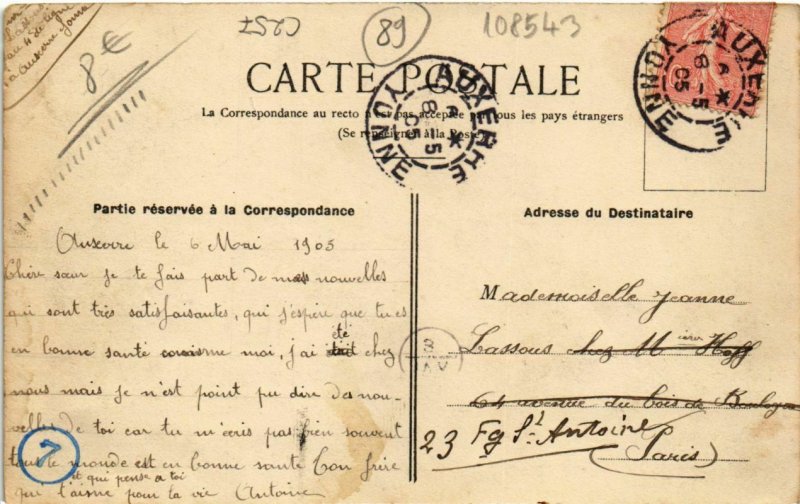 8€
C257
89
108543
CARTE POSTALE
La Correspondance au recto n'est pas acceptée par tous les pays étrangers
(Se renseigner à la Poste)
AUXERRE
YONNE
8-5
05
AUXERRE
YONNE
8-5
05
Partie réservée à la Correspondance
Auxerre le 6 Mai 1905
Chère sœur je te fais part de mes nouvelles
qui sont très satisfaisantes, qui j'espère que tu es
en bonne santé comme moi, j'ai été chez
nous mais je n'est point pu dire des nou-
velles de toi car tu m'ecris pas bien souvent
tout le monde est en bonne santé ton frère
et qui pense a toi
qui t'aisme pour la vie Antoine
7
Adresse du Destinataire
Mademoiselle Jeanne
Lassous chez M Hoff
64 avenue du bois de Boulogne
23 Fg St Antoine
(Paris)